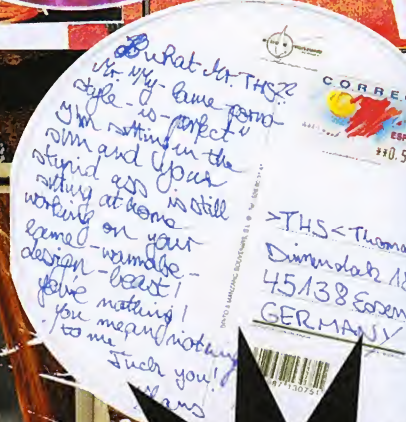 So what Mr. THS??
Mr. "My-lame-porno-
style-is-perfect"
I'm sitting in the
sun and your
stupid ass is still
sitting at home
working on your
lame-wannabe-
design-beast!
you're nothing!
you mean nothing
to me!
Fuck you!
CORRE
ESP
0.5
>THS< Thoma
45138 Essen
GERMANY